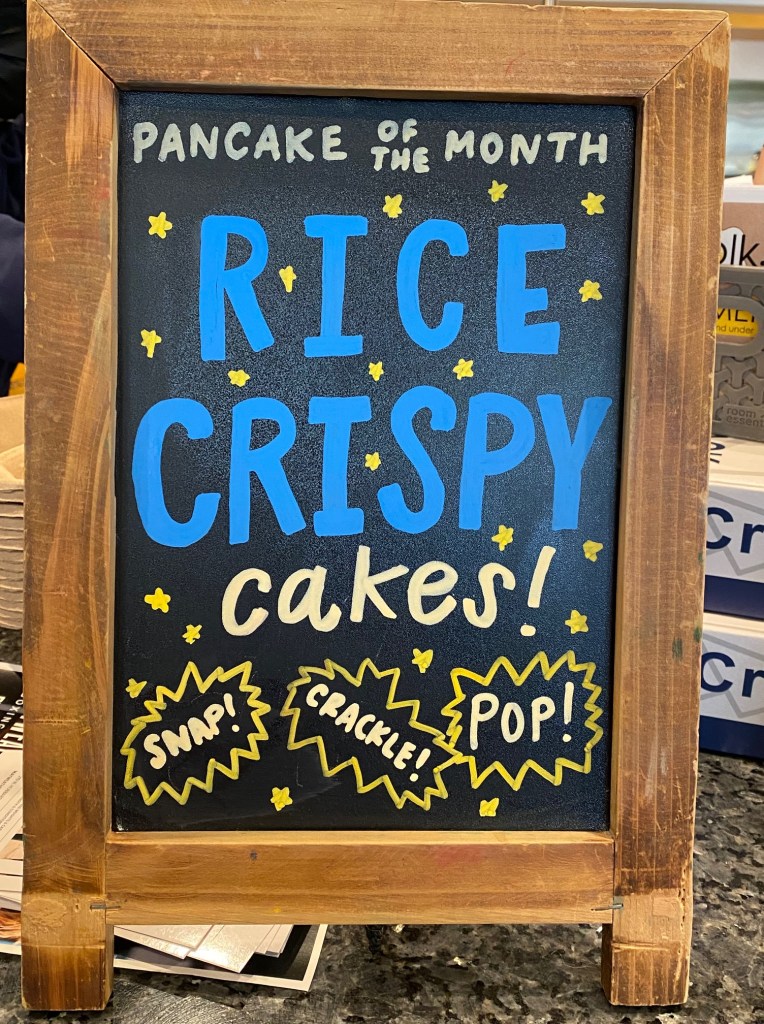 PANCAKE OF THE MONTH
RICE
CRISPY
cakes!
SNAP! CRACKLE! POP!
olk.
nd under
room
essent
Cr
Cr